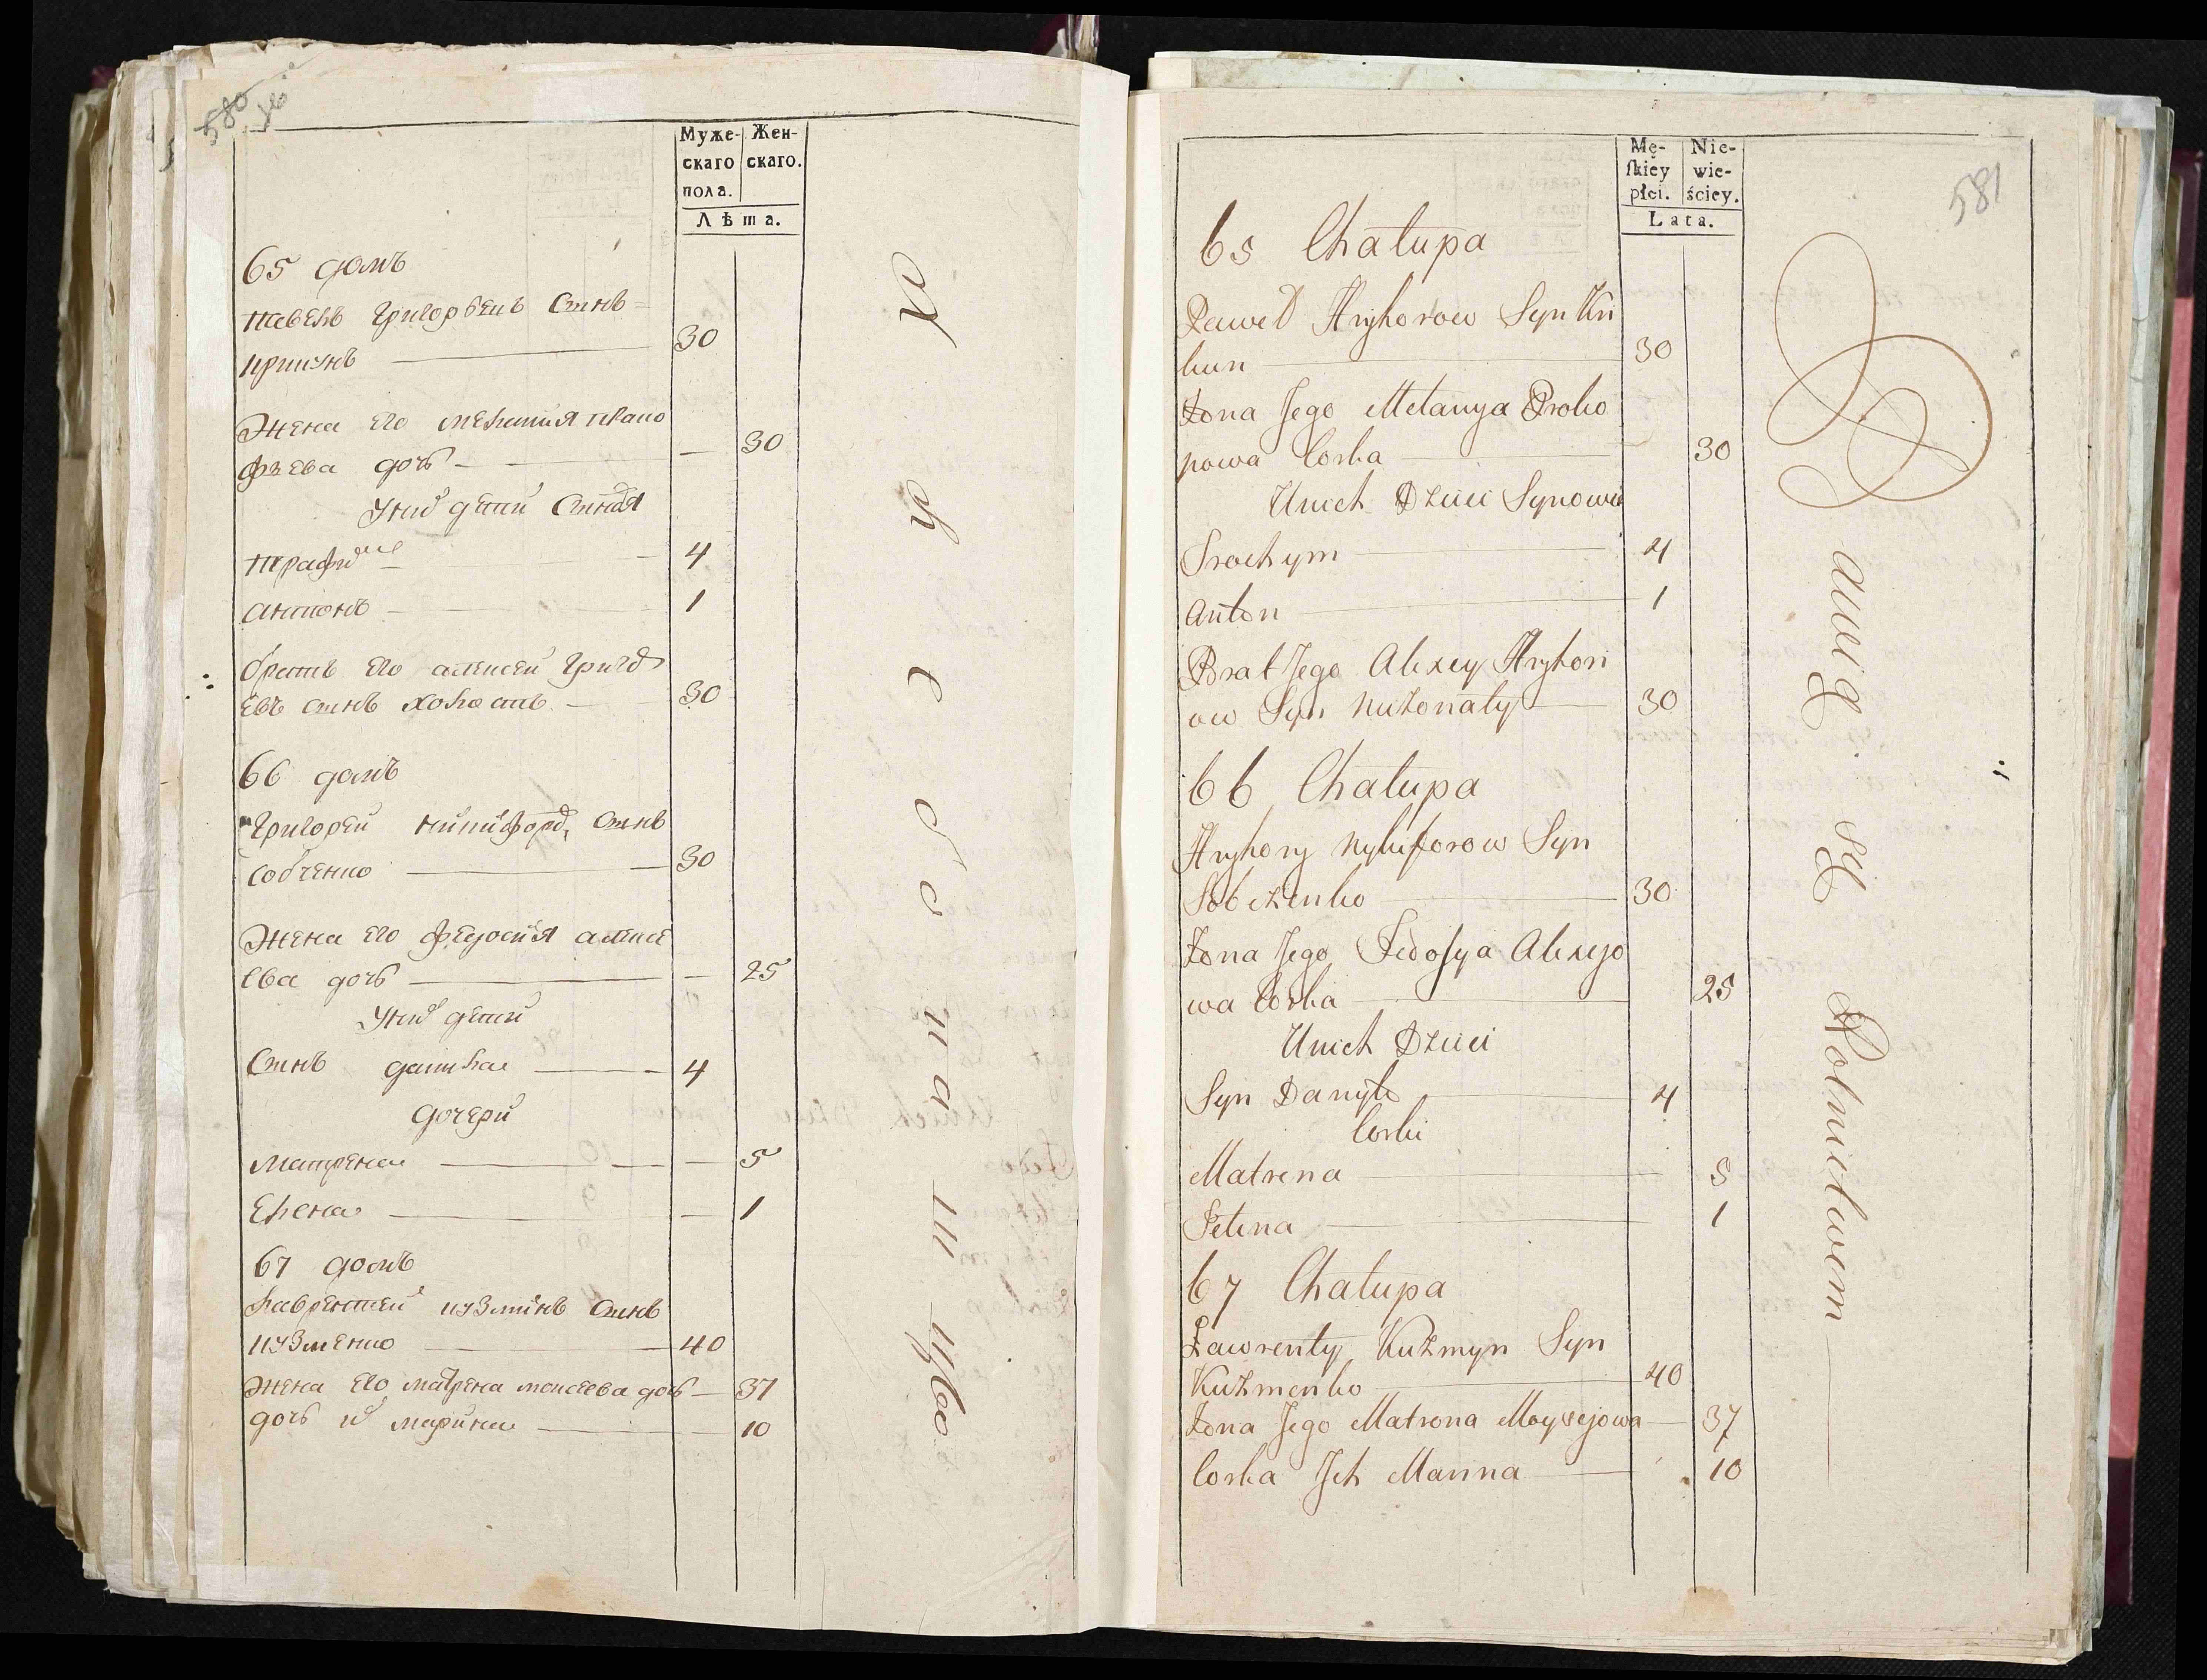 580
Муже-
скаго
пола.
Жен-
скаго.
Лѣта.
65 домъ
Павелъ Григорьевъ сынъ
30
Жена его Мелания Проко
фьева дочь
30
У них дети сыновья
Трафим
4
Антонъ
1
братъ его Алексей Григор
евъ сынъ холостъ
30
66 домъ
Григорей Никифоров сынъ
Собченко
30
Жена его Федосия Алексе
ева дочь
25
У них дети
Сынъ Данила
4
дочери
Матрена
5
Елена
1
67 домъ
Лаврентей Кузминъ сынъ
Кузменко
40
Жена его Матрена Моисеева дочь
37
дочь их Марина
10
581
Mę-
skiey
płci.
Nie-
wie-
ściey.
Lata.
65 Chałupa
Paweł Hryhorow Syn Kri
hun
30
Żona Jego Melanya Proko
powa Corka
30
Unich Dzieci Synowie
Trochym
4
Anton
1
Brat Jego Alexey Hryhori
ow Syn Nieżonaty
30
66 Chałupa
Hryhory Nykiforow Syn
Sobczenko
30
Żona Jego Fedosya Alexejo
wa Corka
25
Unich Dzieci
Syn Danyło
4
Corki
Matrena
5
1
67 Chałupa
Ławrenty Kuzmyn Syn
Kuzmenko
40
Żona Jego Matrona Moysejowa
37
Corka Jch Marina
10
Bawią się Rolnictwem